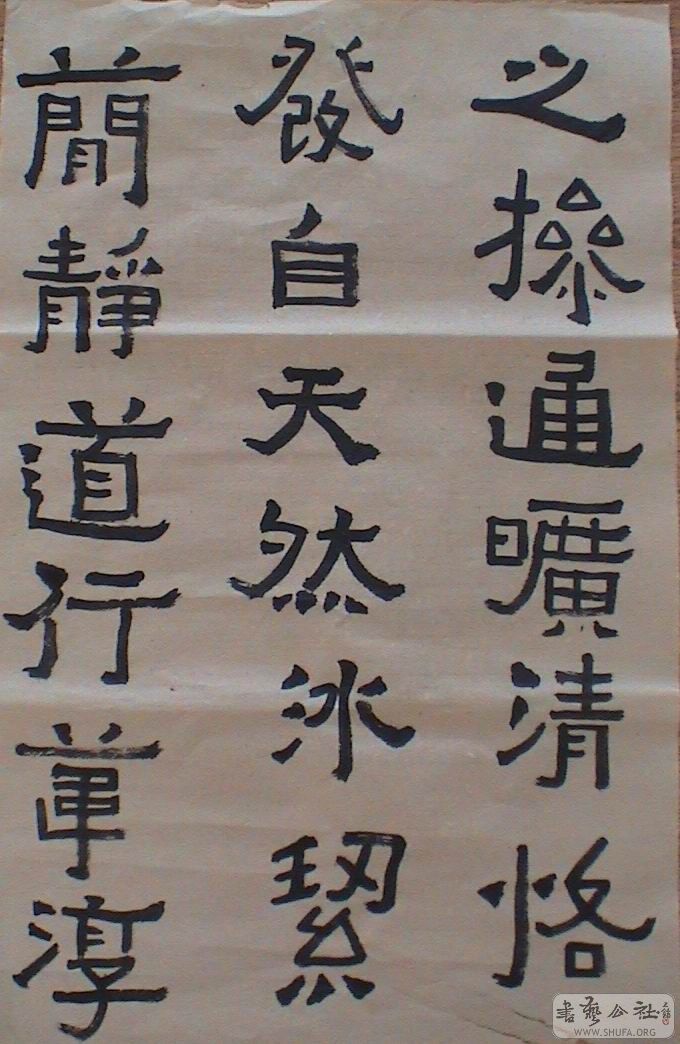 之操通曠清恪
發自天然冰絜
簡靜道行葦淳
書藝公社
WWW.SHUFA.ORG